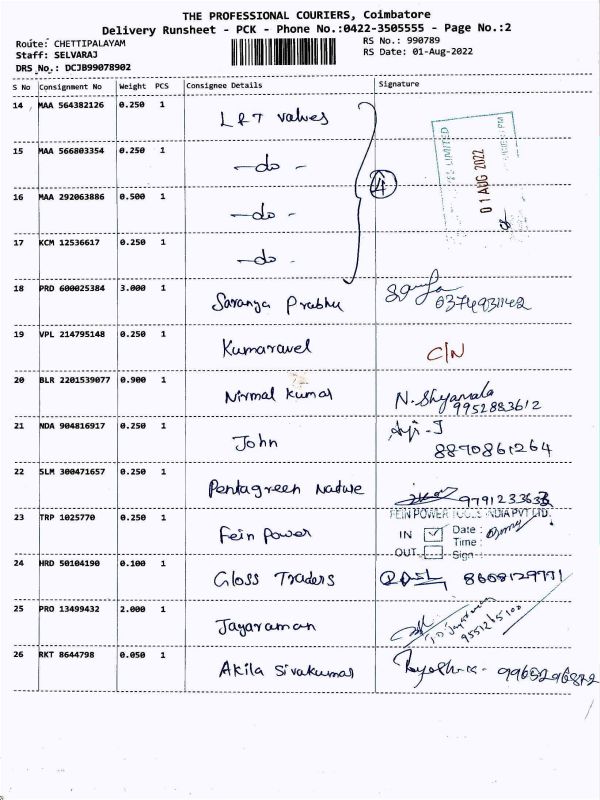 THE PROFESSIONAL COURIERS, Coimbatore
Delivery Runsheet - PCK - Phone No.:0422-3505555 - Page No.:2
Route: CHETTIPALAYAM
RS No.: 990789
Staff: SELVARAJ
RS Date: 01-Aug-2022
DRS No.: DCJB99078902
S No Consignment No Weight PCS Consignee Details Signature
14 MAA 564382126 0.250 1 L&T valves
15 MAA 566803354 0.250 1 -do-
16 MAA 292063886 0.500 1 -do-
17 KCM 12536617 0.250 1 -do-
4
LIMITED
01 AUG 2022
18 PRD 600025384 3.000 1 Saranya Prabhu
19 VPL 214795148 0.250 1 Kumaravel C/N
20 BLR 2201539077 0.900 1 Nirmal Kumar N. Shyamala
9952883612
21 NDA 904816917 0.250 1 John
8870861264
22 SLM 300471657 0.250 1 Pentagreen Nature
23 TRP 1025770 0.250 1 Fein Power
FEIN POWER TOOLS INDIA PVT LTD.
IN Date :
Time :
OUT Sign
24 HRD 50104190 0.100 1 Gloss Traders
25 PRO 13499432 2.000 1 Jayaraman
26 RKT 8644798 0.050 1 Akila Sivakumar